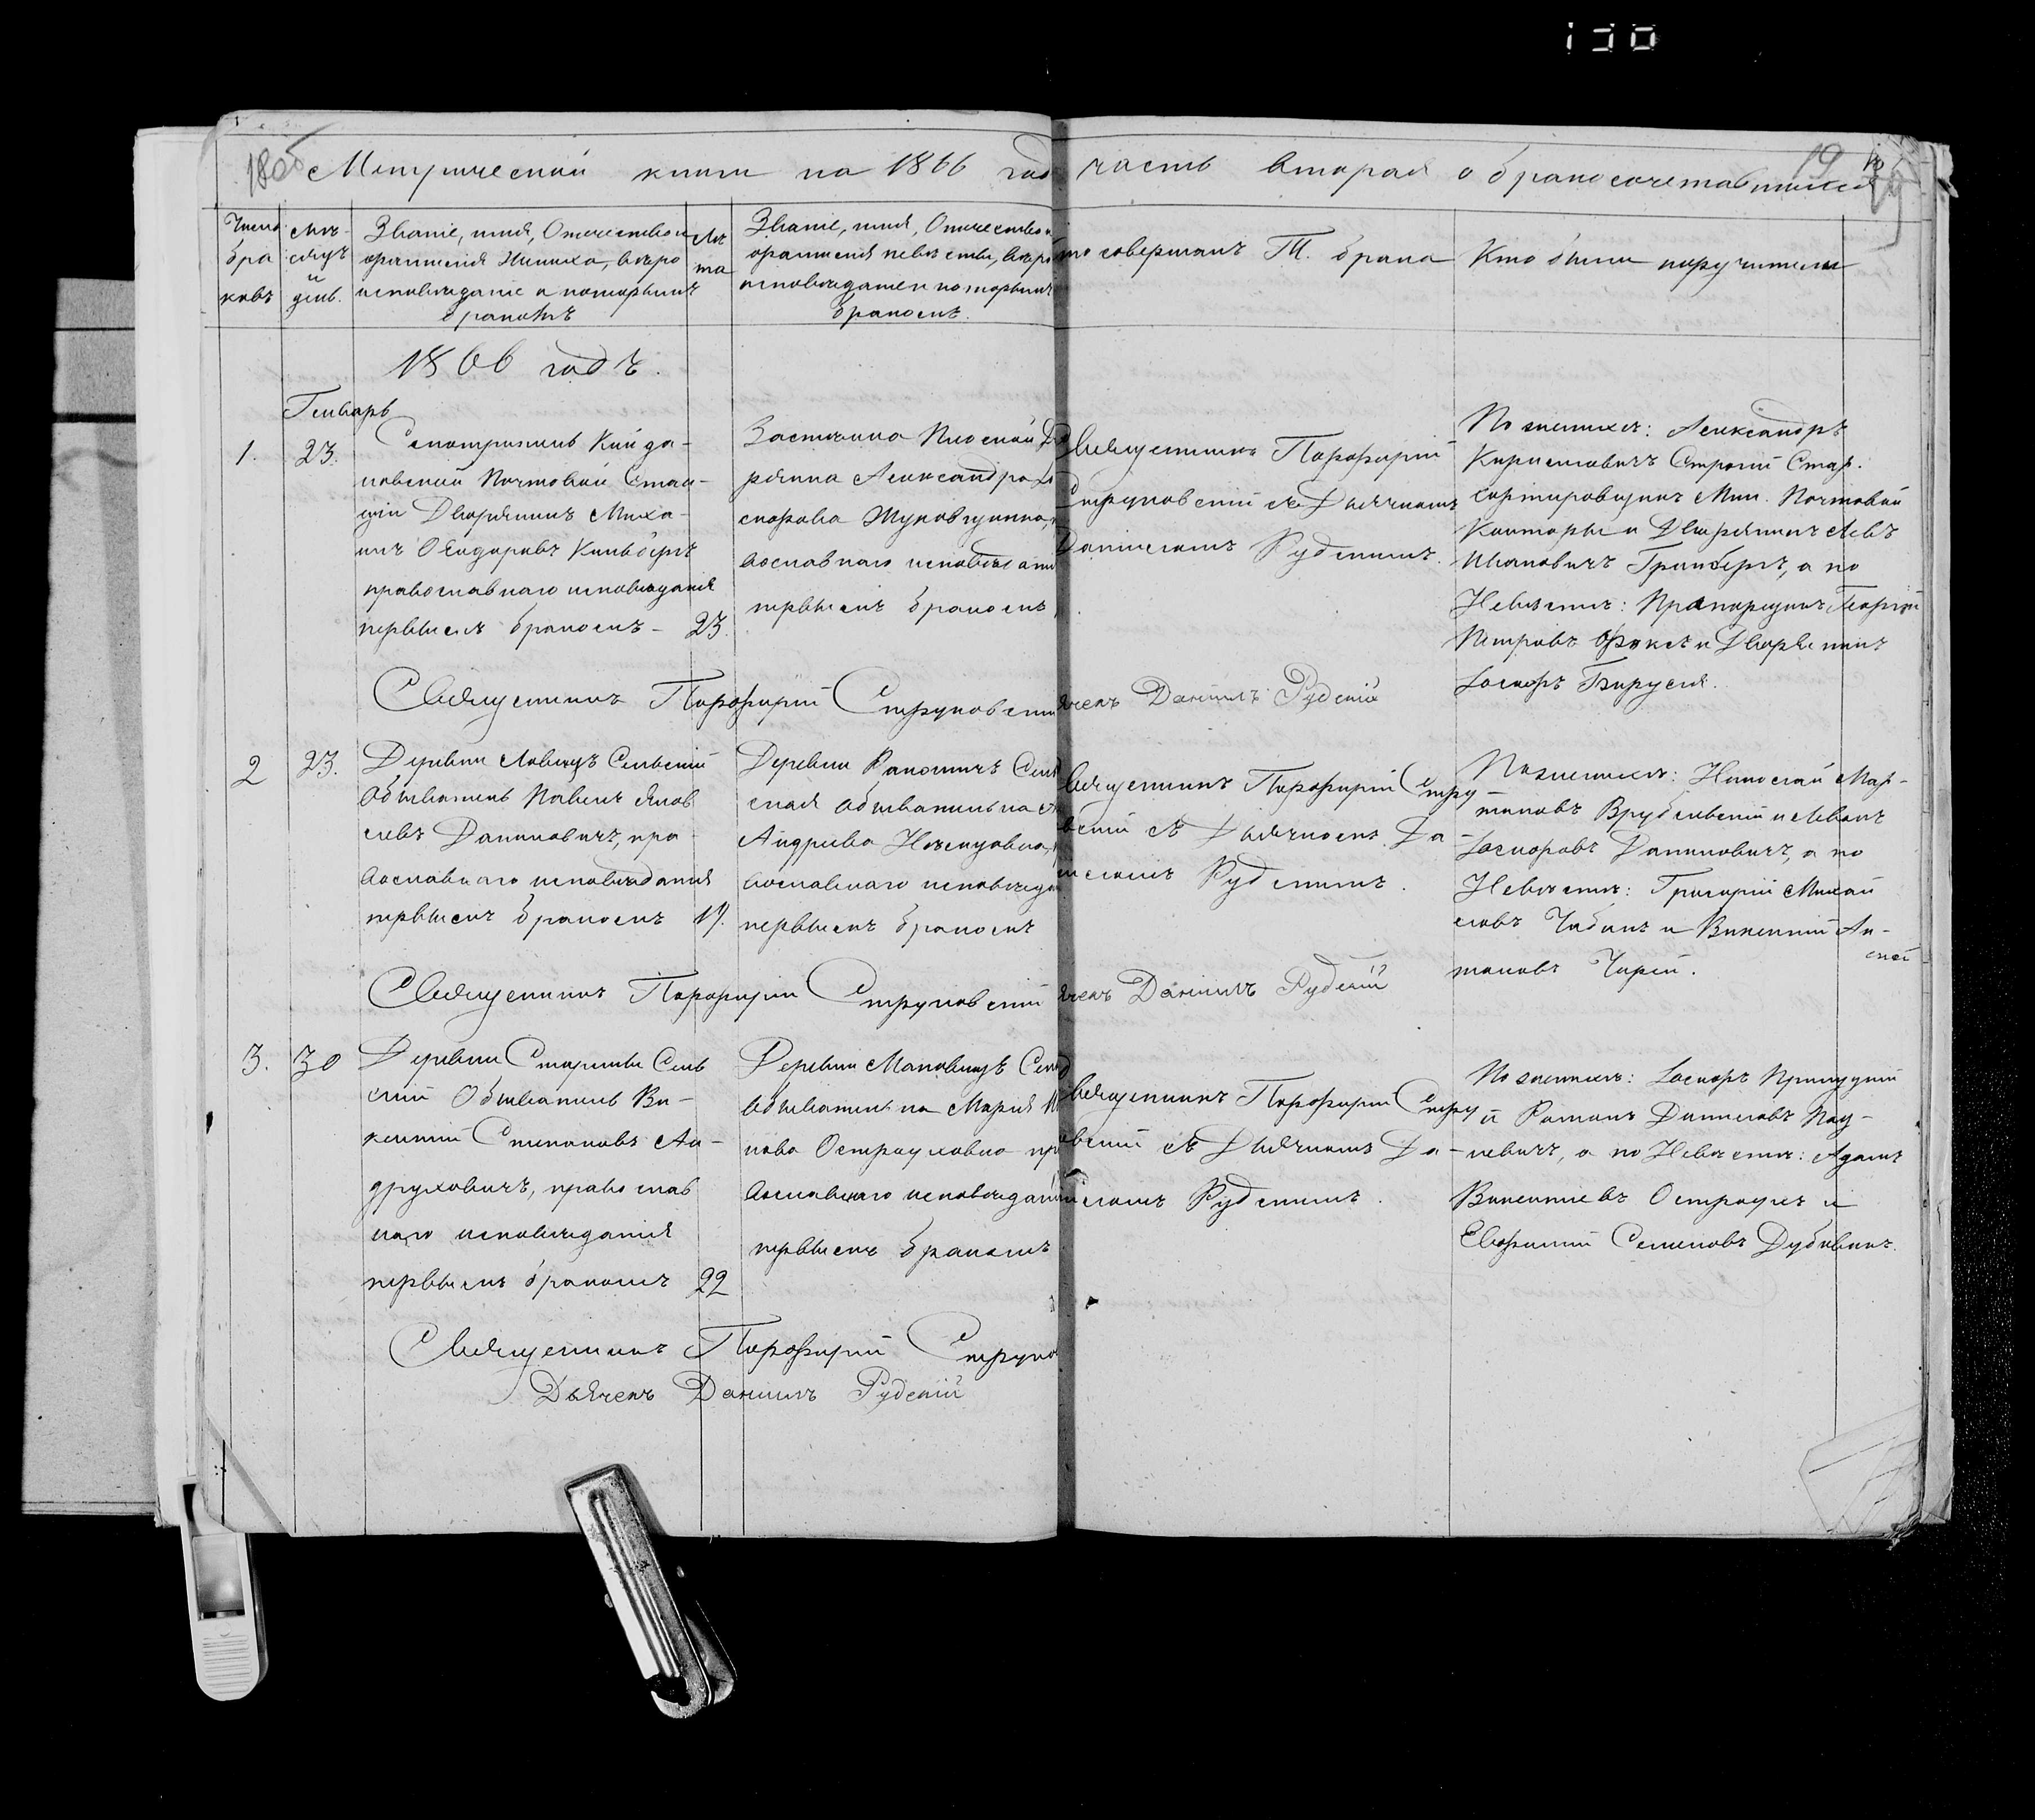 130
Метрической книги на 1866 год часть вторая о бракосочетавшихся
19
Число бра ковъ
Мѣ- сяцъ и день.
Званіе, имя, Отечество и
фамилія Жениха, вѣро
исповѣданіе и которымъ
бракомъ
Лѣ та
Званіе, имя, Отечество и
фамилія невѣсты, вѣро
исповѣданіе и которымъ
бракомъ.
то совершалъ Т. брака
Кто были поручители
1866 годъ.
Генварь
1. 23.
Смотритель Койда-
новской Почтовой Стан-
ціи Дворянинъ Миха-
илъ Ѳеодоровъ
православнаго исповѣданія
первымъ бракомъ - 23.
Застѣнка
рянка Александра
Жуковщанка,
вославнаго исповѣдані
первымъ бракомъ
Священникъ Порфирий
Струковскій съ Дьячкомъ
Даніиломъ Рудскимъ.
По женихѣ: Александръ
Кириловичъ Строгій Стар.
сортировщикъ Мин. Почтовой
Конторы и Дворянинъ Левъ
Ивановичъ Гринбергъ, а по
Невѣстѣ: Прапорщикъ Георгій
Петровъ и Дворянинъ
Іосифъ Бируля.
Священникъ Порфирій Струковскій
ячекъ Даніилъ Рудскій
2 23.
Деревни Сельскій
Обыватель Павелъ Яков
левъ Даниловичъ, пра
вославнаго исповѣданія
первымъ бракомъ 19.
Деревни Сель
ская обывателька
Андреева
вославнаго исповѣда
первымъ бракомъ
Священникъ Порфирій Стру
вскій съ Дьячкомъ Да
ніиломъ Рудскимъ.
По женихѣ: Николай Мар-
тиновъ Врублевскій и Леванъ
Іосифовъ Даниловичъ, а по
Невѣстѣ: Григорій Михай
ловъ и Викентій Ан-
тоновъ
Священникъ Порфирій Струковскій
ячекъ Даніилъ Рудскій
3. 30
Деревни Старинки Сель
скій Обыватель Ви-
кентій Степановъ Ан-
друховичъ, православ
наго исповѣданія
первымъ бракомъ 22
Деревни Сель
Обывателька Марія
нова Остраусовна пра
вославнаго исповѣдані
первымъ бракомъ
Священникъ Порфирій Стру
овскій съ Дьячкомъ Да-
ніиломъ Рудскимъ.
По женихѣ: Іосифъ
и Романъ Даниловъ
левичъ, а по Невѣстѣ: Адамъ
Викентіевъ Остраусъ и
Евфимій Семеновъ Дубовикъ.
Священникъ Порфирій Струко
Дьячекъ Даніилъ Рудскій